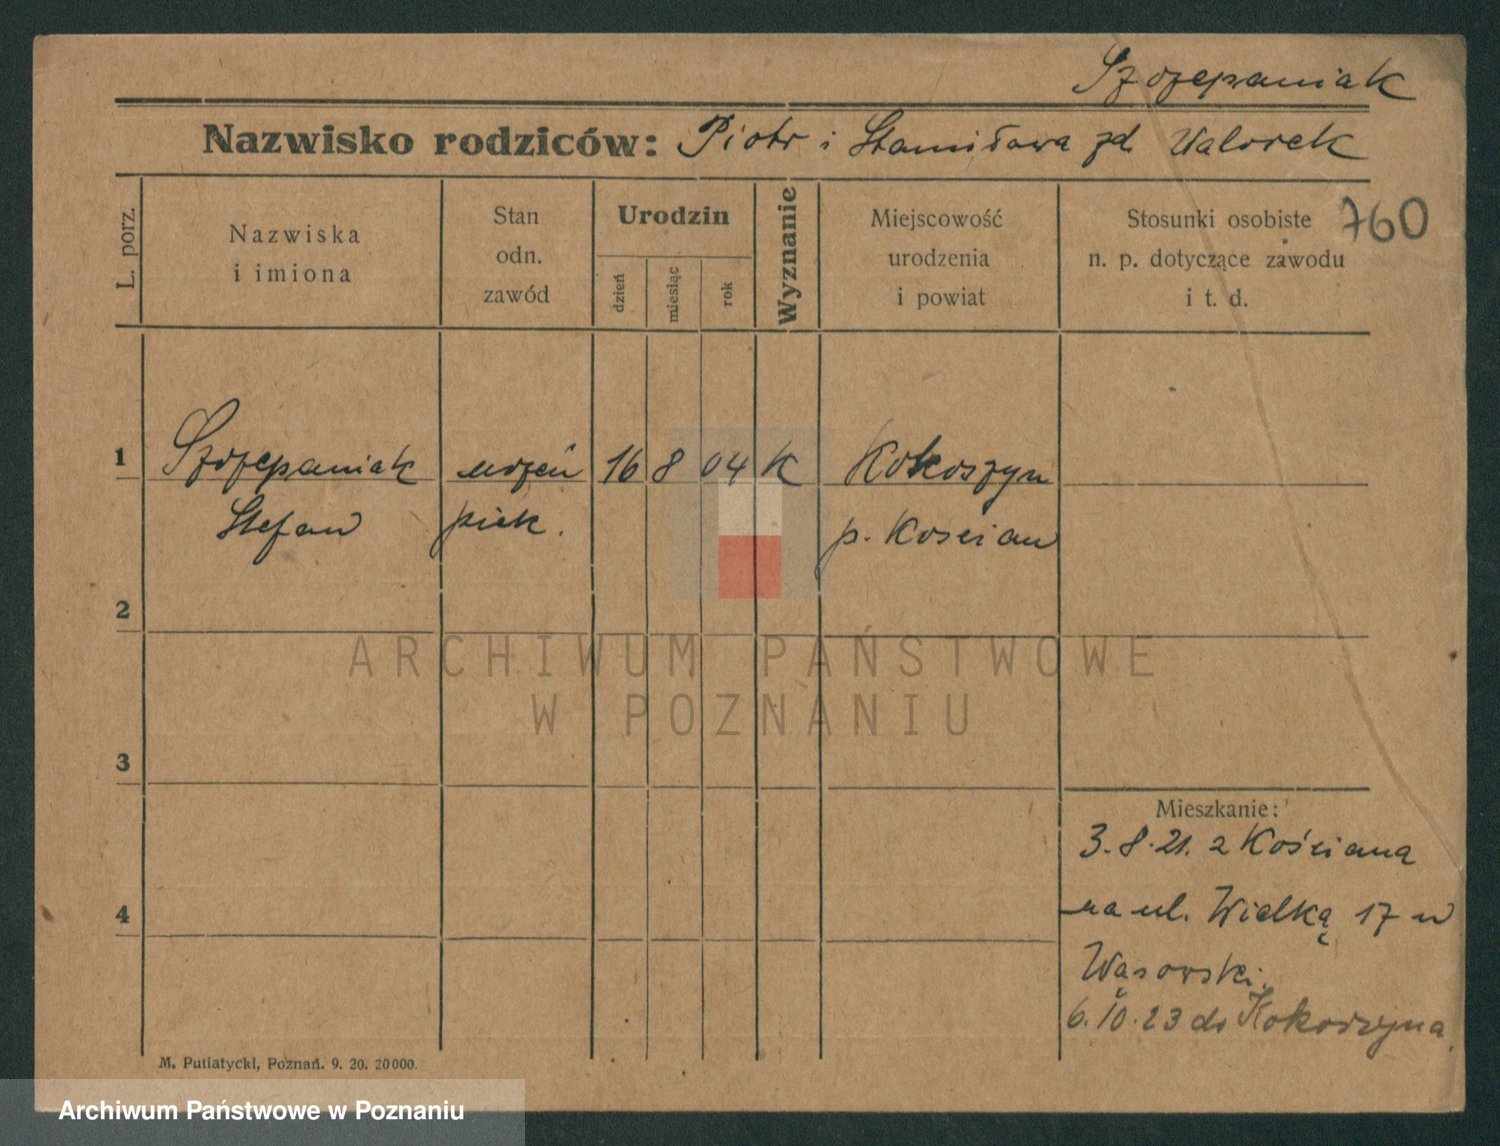 Szczepaniak
Nazwisko rodziców: Piotr i Stanisława zd. Walorek
760
L. porz.
Nazwiska
i imiona
Stan
odn.
zawód
Urodzin
dzień
miesiąc
rok
Wyznanie
Miejscowość
urodzenia
i powiat
Stosunki osobiste
n. p. dotyczące zawodu
i t. d.
1 Szczepaniak uczeń 16 8 04 K Kokoszyn
Stefan piek. p. Koscian
2
3
4
Mieszkanie:
3.8.21. z Kościana
na ul. Wielką 17 u
Wąsowski.
6.10.23 do Kokoszyna
M. Putiatycki, Poznań. 9. 20. 20000.
ARCHIWUM PAŃSTWOWE
W POZNANIU
Archiwum Państwowe w Poznaniu